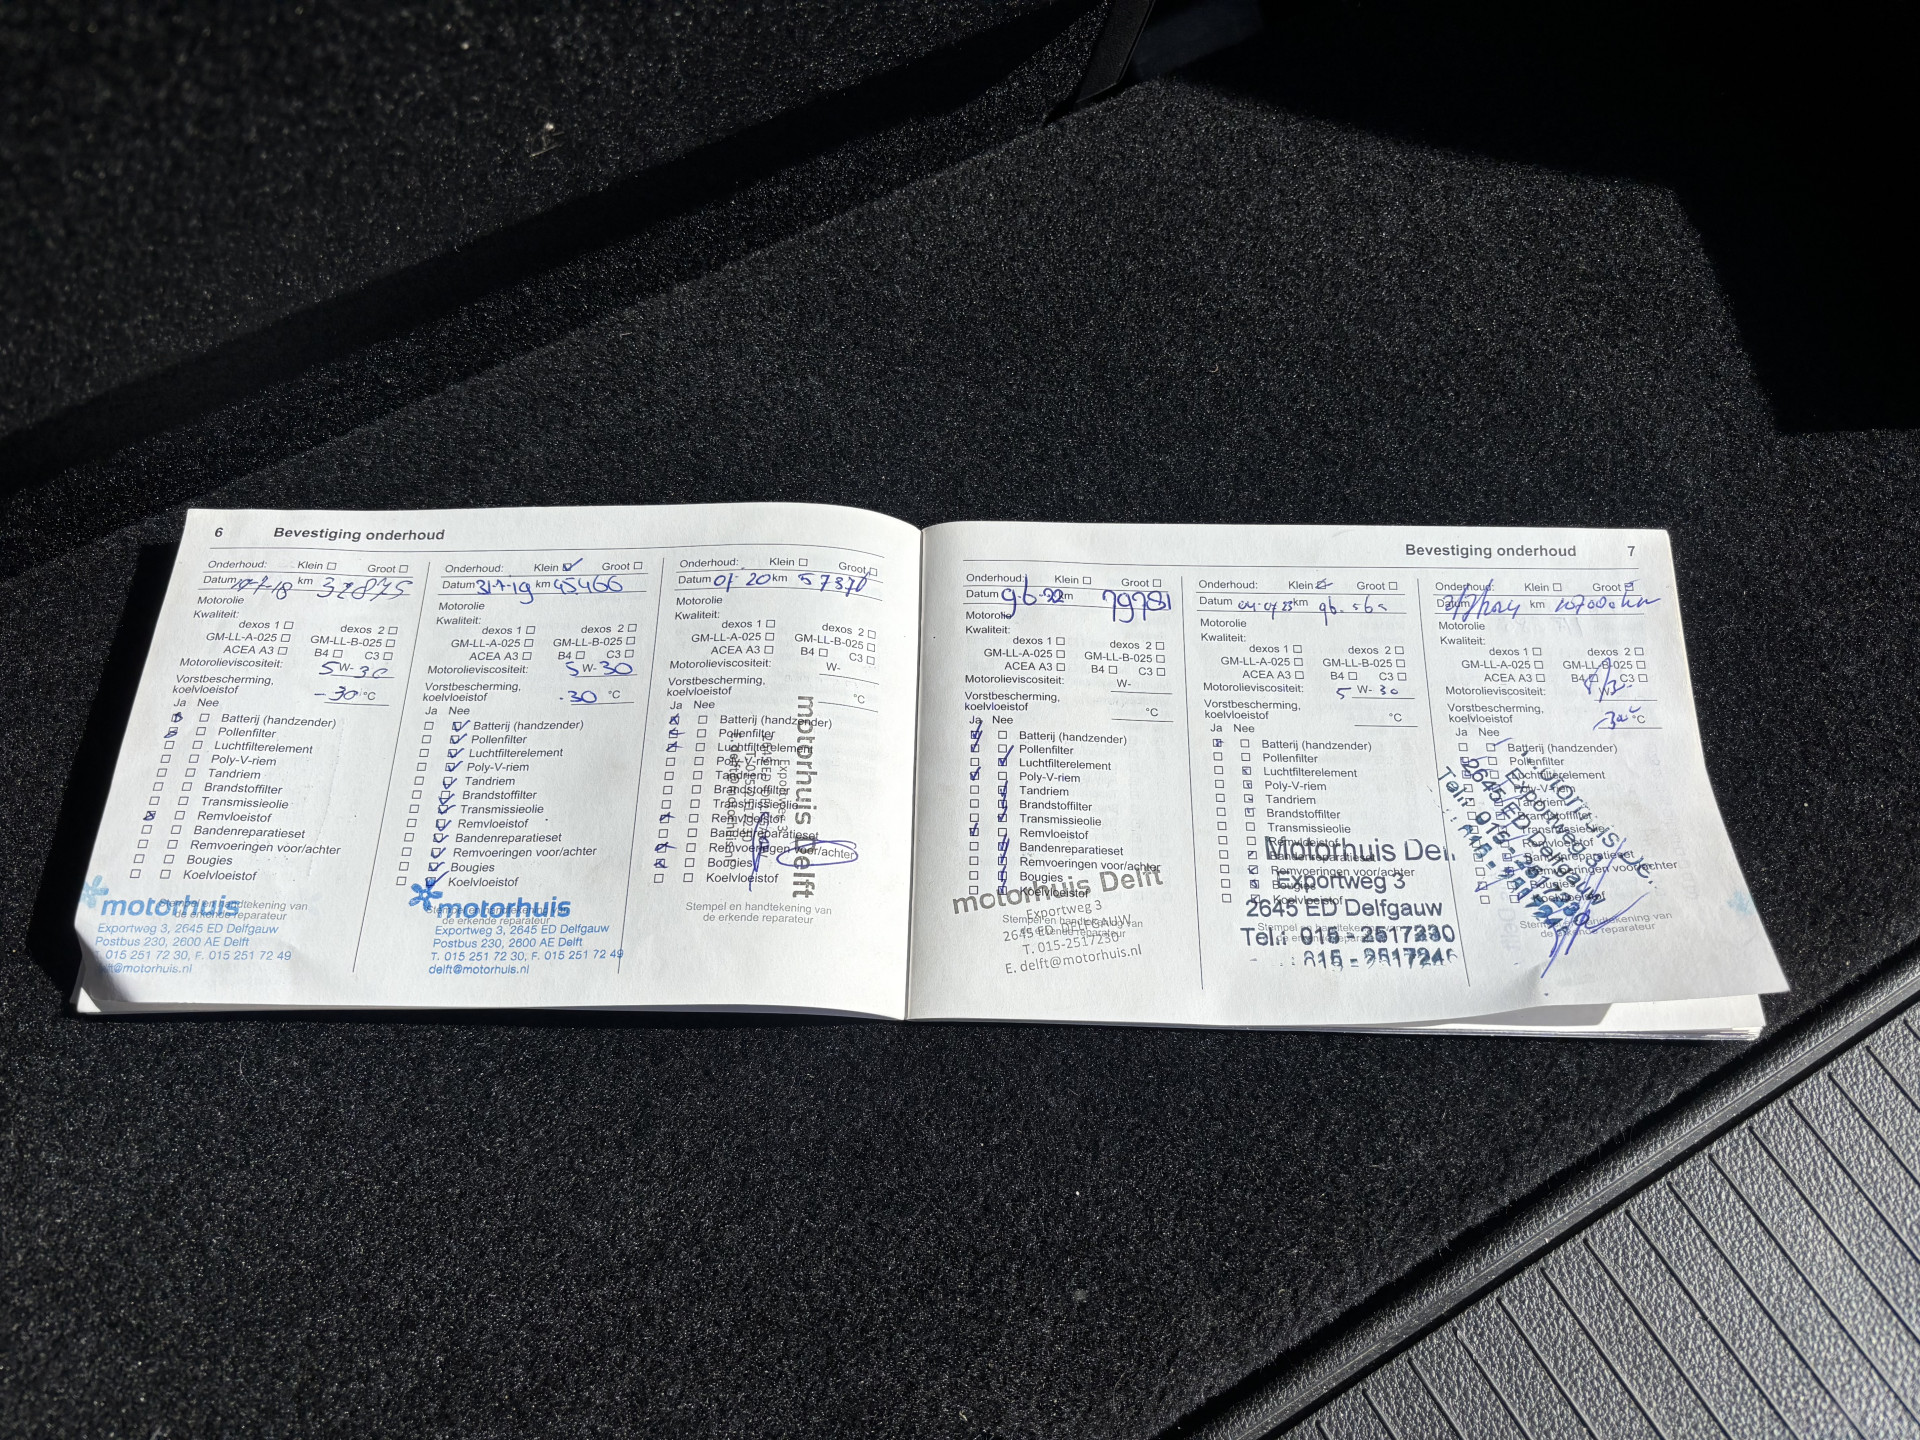 6 Bevestiging onderhoud
Onderhoud: Klein Groot
Datum km 32875
Motorolie
Kwaliteit:
dexos 1 dexos 2
GM-LL-A-025 GM-LL-B-025
ACEA A3 B4 C3
Motorolieviscositeit:
5 W- 30
Vorstbescherming,
koelvloeistof -30 °C
Ja Nee
Batterij (handzender)
Pollenfilter
Luchtfilterelement
Poly-V-riem
Tandriem
Brandstoffilter
Transmissieolie
Remvloeistof
Bandenreparatieset
Remvoeringen voor/achter
Bougies
Koelvloeistof
Stempel en handtekening van
de erkende reparateur
motorhuis
Exportweg 3, 2645 ED Delfgauw
Postbus 230, 2600 AE Delft
T. 015 251 72 30, F. 015 251 72 49
delft@motorhuis.nl
Onderhoud: Klein Groot
Datum 31-7-19 km 45466
Motorolie
Kwaliteit:
dexos 1 dexos 2
GM-LL-A-025 GM-LL-B-025
ACEA A3 B4 C3
Motorolieviscositeit: 5 W- 30
Vorstbescherming,
koelvloeistof -30 °C
Ja Nee
Batterij (handzender)
Pollenfilter
Luchtfilterelement
Poly-V-riem
Tandriem
Brandstoffilter
Transmissieolie
Remvloeistof
Bandenreparatieset
Remvoeringen voor/achter
Bougies
Koelvloeistof
Stempel en handtekening van
de erkende reparateur
motorhuis
Exportweg 3, 2645 ED Delfgauw
Postbus 230, 2600 AE Delft
T. 015 251 72 30, F. 015 251 72 49
delft@motorhuis.nl
Onderhoud: Klein Groot
Datum 07- 20 km 57370
Motorolie
Kwaliteit:
dexos 1 dexos 2
GM-LL-A-025 GM-LL-B-025
ACEA A3 B4 C3
Motorolieviscositeit: W-
Vorstbescherming,
koelvloeistof °C
Ja Nee
Batterij (handzender)
Pollenfilter
Luchtfilterelement
Poly-V-riem
Tandriem
Brandstoffilter
Transmissieolie
Remvloeistof
Bandenreparatieset
Remvoeringen voor/achter
Bougies
Koelvloeistof
Stempel en handtekening van
de erkende reparateur
motorhuis Delft
Bevestiging onderhoud 7
Onderhoud: Klein Groot
Datum 9-6-22 km 79781
Motorolie
Kwaliteit:
dexos 1 dexos 2
GM-LL-A-025 GM-LL-B-025
ACEA A3 B4 C3
Motorolieviscositeit: W-
Vorstbescherming,
koelvloeistof °C
Ja Nee
Batterij (handzender)
Pollenfilter
Luchtfilterelement
Poly-V-riem
Tandriem
Brandstoffilter
Transmissieolie
Remvloeistof
Bandenreparatieset
Remvoeringen voor/achter
Bougies
Koelvloeistof
Stempel en handtekening van
de erkende reparateur
motorhuis Delft
Exportweg 3
2645 ED DELFGAUW
T. 015-2517230
E. delft@motorhuis.nl
Onderhoud: Klein Groot
Datum 04-07 23 km 96.565
Motorolie
Kwaliteit:
dexos 1 dexos 2
GM-LL-A-025 GM-LL-B-025
ACEA A3 B4 C3
Motorolieviscositeit: 5 W- 30
Vorstbescherming,
koelvloeistof °C
Ja Nee
Batterij (handzender)
Pollenfilter
Luchtfilterelement
Poly-V-riem
Tandriem
Brandstoffilter
Transmissieolie
Remvloeistof
Bandenreparatieset
Bougies
Koelvloeistof
Motorhuis Del
Exportweg 3
2645 ED Delfgauw
Tel.: 015 - 2517230
Onderhoud: Klein Groot
Datum km
Motorolie
Kwaliteit:
dexos 1 dexos 2
GM-LL-A-025 GM-LL-B-025
ACEA A3 B4 C3
Motorolieviscositeit:
Vorstbescherming,
koelvloeistof -30 °C
Ja Nee
Batterij (handzender)
Pollenfilter
Luchtfilterelement
Poly-V-riem
Tandriem
Brandstoffilter
Transmissieolie
Remvloeistof
Bandenreparatieset
Remvoeringen voor/achter
Bougies
Koelvloeistof
Stempel en handtekening van
de erkende reparateur
Exportweg
2645 ED Delfgauw